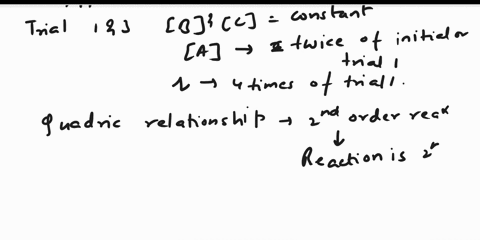 Trial 1 & 3 [B] & [C] = constant
[A] → twice of initial or
trial 1
r → 4 times of trial 1.
Quadric relationship → 2nd order reaxⁿ
↓
Reaction is 2